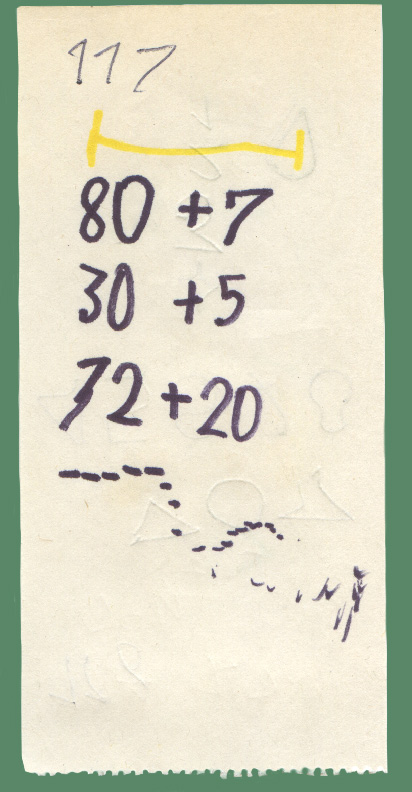 117
80 +7
30 +5
72+20